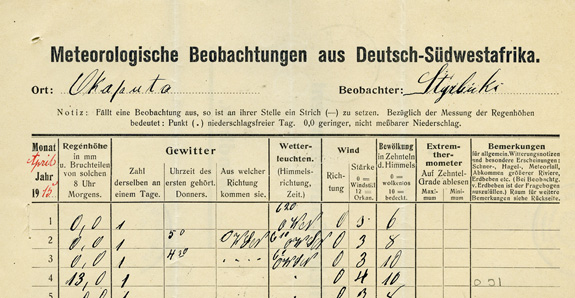 Meteorologische Beobachtungen aus Deutsch-Südwestafrika.
Ort: Okaputa Beobachter:
Notiz: Fällt eine Beobachtung aus, so ist an ihrer Stelle ein Strich (—) zu setzen. Bezüglich der Messung der Regenhöhen
bedeutet: Punkt (.) niederschlagsfreier Tag. 0,0 geringer, nicht meßbarer Niederschlag.
Monat April Jahr 19
Regenhöhe in mm u. Bruchteilen von solchen 8 Uhr Morgens.
Gewitter
Zahl derselben an einem Tage.
Uhrzeit des ersten gehört. Donners.
Aus welcher Richtung kommen sie.
Wetterleuchten. (Himmelsrichtung, Zeit.)
Wind
Richtung
Stärke 0 = Windstill 12 = Orkan.
Bewölkung in Zehnteln d. Himmels. 0 = wolkenlos 10 = bedeckt.
Extremthermometer Auf Zehntel-Grade ablesen
Maximum
Minimum
Bemerkungen für allgemein. Witterungsnotizen und besondere Erscheinungen: Schnee-, Hagel-, Meteorfall, Abkommen größerer Riviere, Erdbeben etc. (Bei Beobachtg. v. Erdbeben ist der Fragebogen auszufüllen.) Raum für weitere Bemerkungen siehe Rückseite.
1 0,0 1 0 3 6
2 0,0 1 0 3 8
3 0,0 1 0 3 10
4 13,0 1 0 4 10